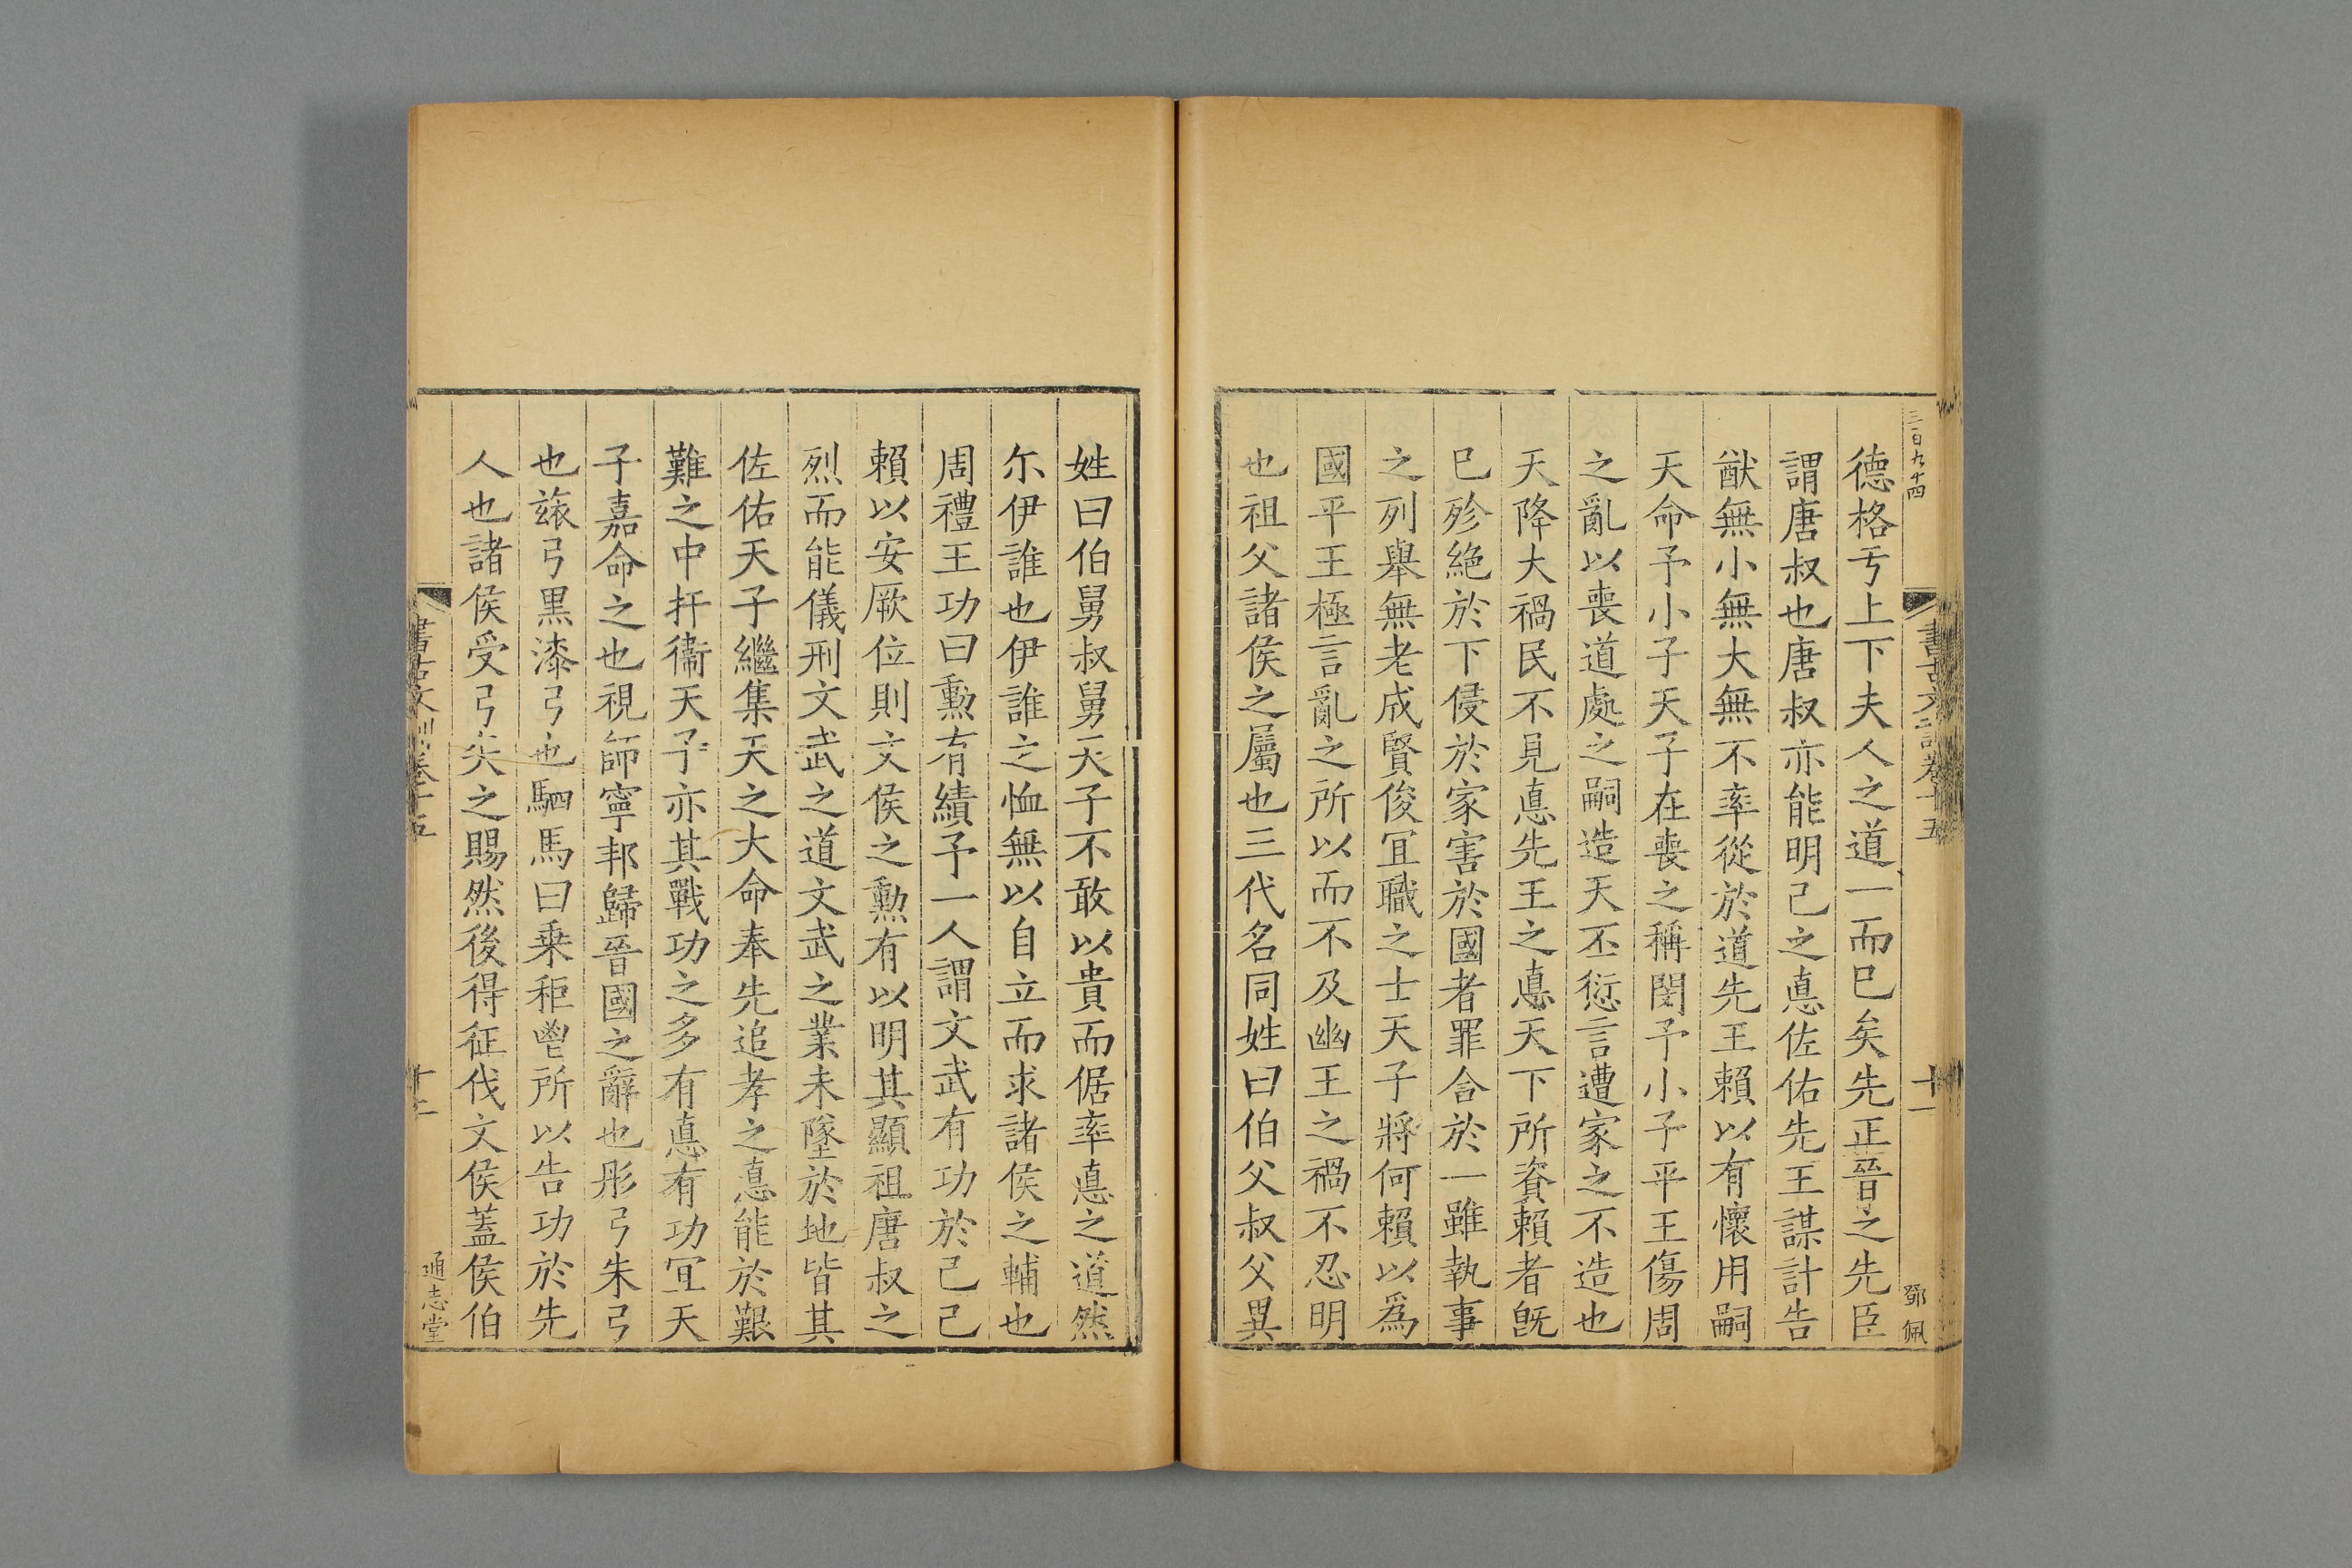 三百九十四
書古文訓卷十五
十一
鄧佩
德格亏上下夫人之道一而巳矣先正晉之先臣
謂唐叔也唐叔亦能明己之悳佐佑先王謀計告
猷無小無大無不率從於道先王賴以有懷用嗣
天命予小子天子在喪之稱閔予小子平王傷周
之亂以喪道處之嗣造天丕愆言遭家之不造也
天降大禍民不見悳先王之悳天下所資賴者旣
巳殄絶於下侵於家害於國者罪咎於一雖執事
之列舉無老成賢俊宜職之士天子將何賴以爲
國平王極言亂之所以而不及幽王之禍不忍明
也祖父諸侯之屬也三代名同姓曰伯父叔父異
姓曰伯舅叔舅天子不敢以貴而倨率悳之道然
尒伊誰也伊誰之恤無以自立而求諸侯之輔也
周禮王功曰勲有績予一人謂文武有功於己己
賴以安厥位則文侯之勲有以明其顯祖唐叔之
烈而能儀刑文武之道文武之業未墜於地皆其
佐佑天子繼集天之大命奉先追孝之悳能於艱
難之中扞衞天子亦其戰功之多有悳有功宜天
子嘉命之也視師寧邦歸晉國之辭也彤弓朱弓
也玈弓黒漆弓也駟馬曰乗秬鬯所以告功於先
人也諸侯受弓矢之賜然後得征伐文侯蓋侯伯
書古文訓卷十五
十二
通志堂